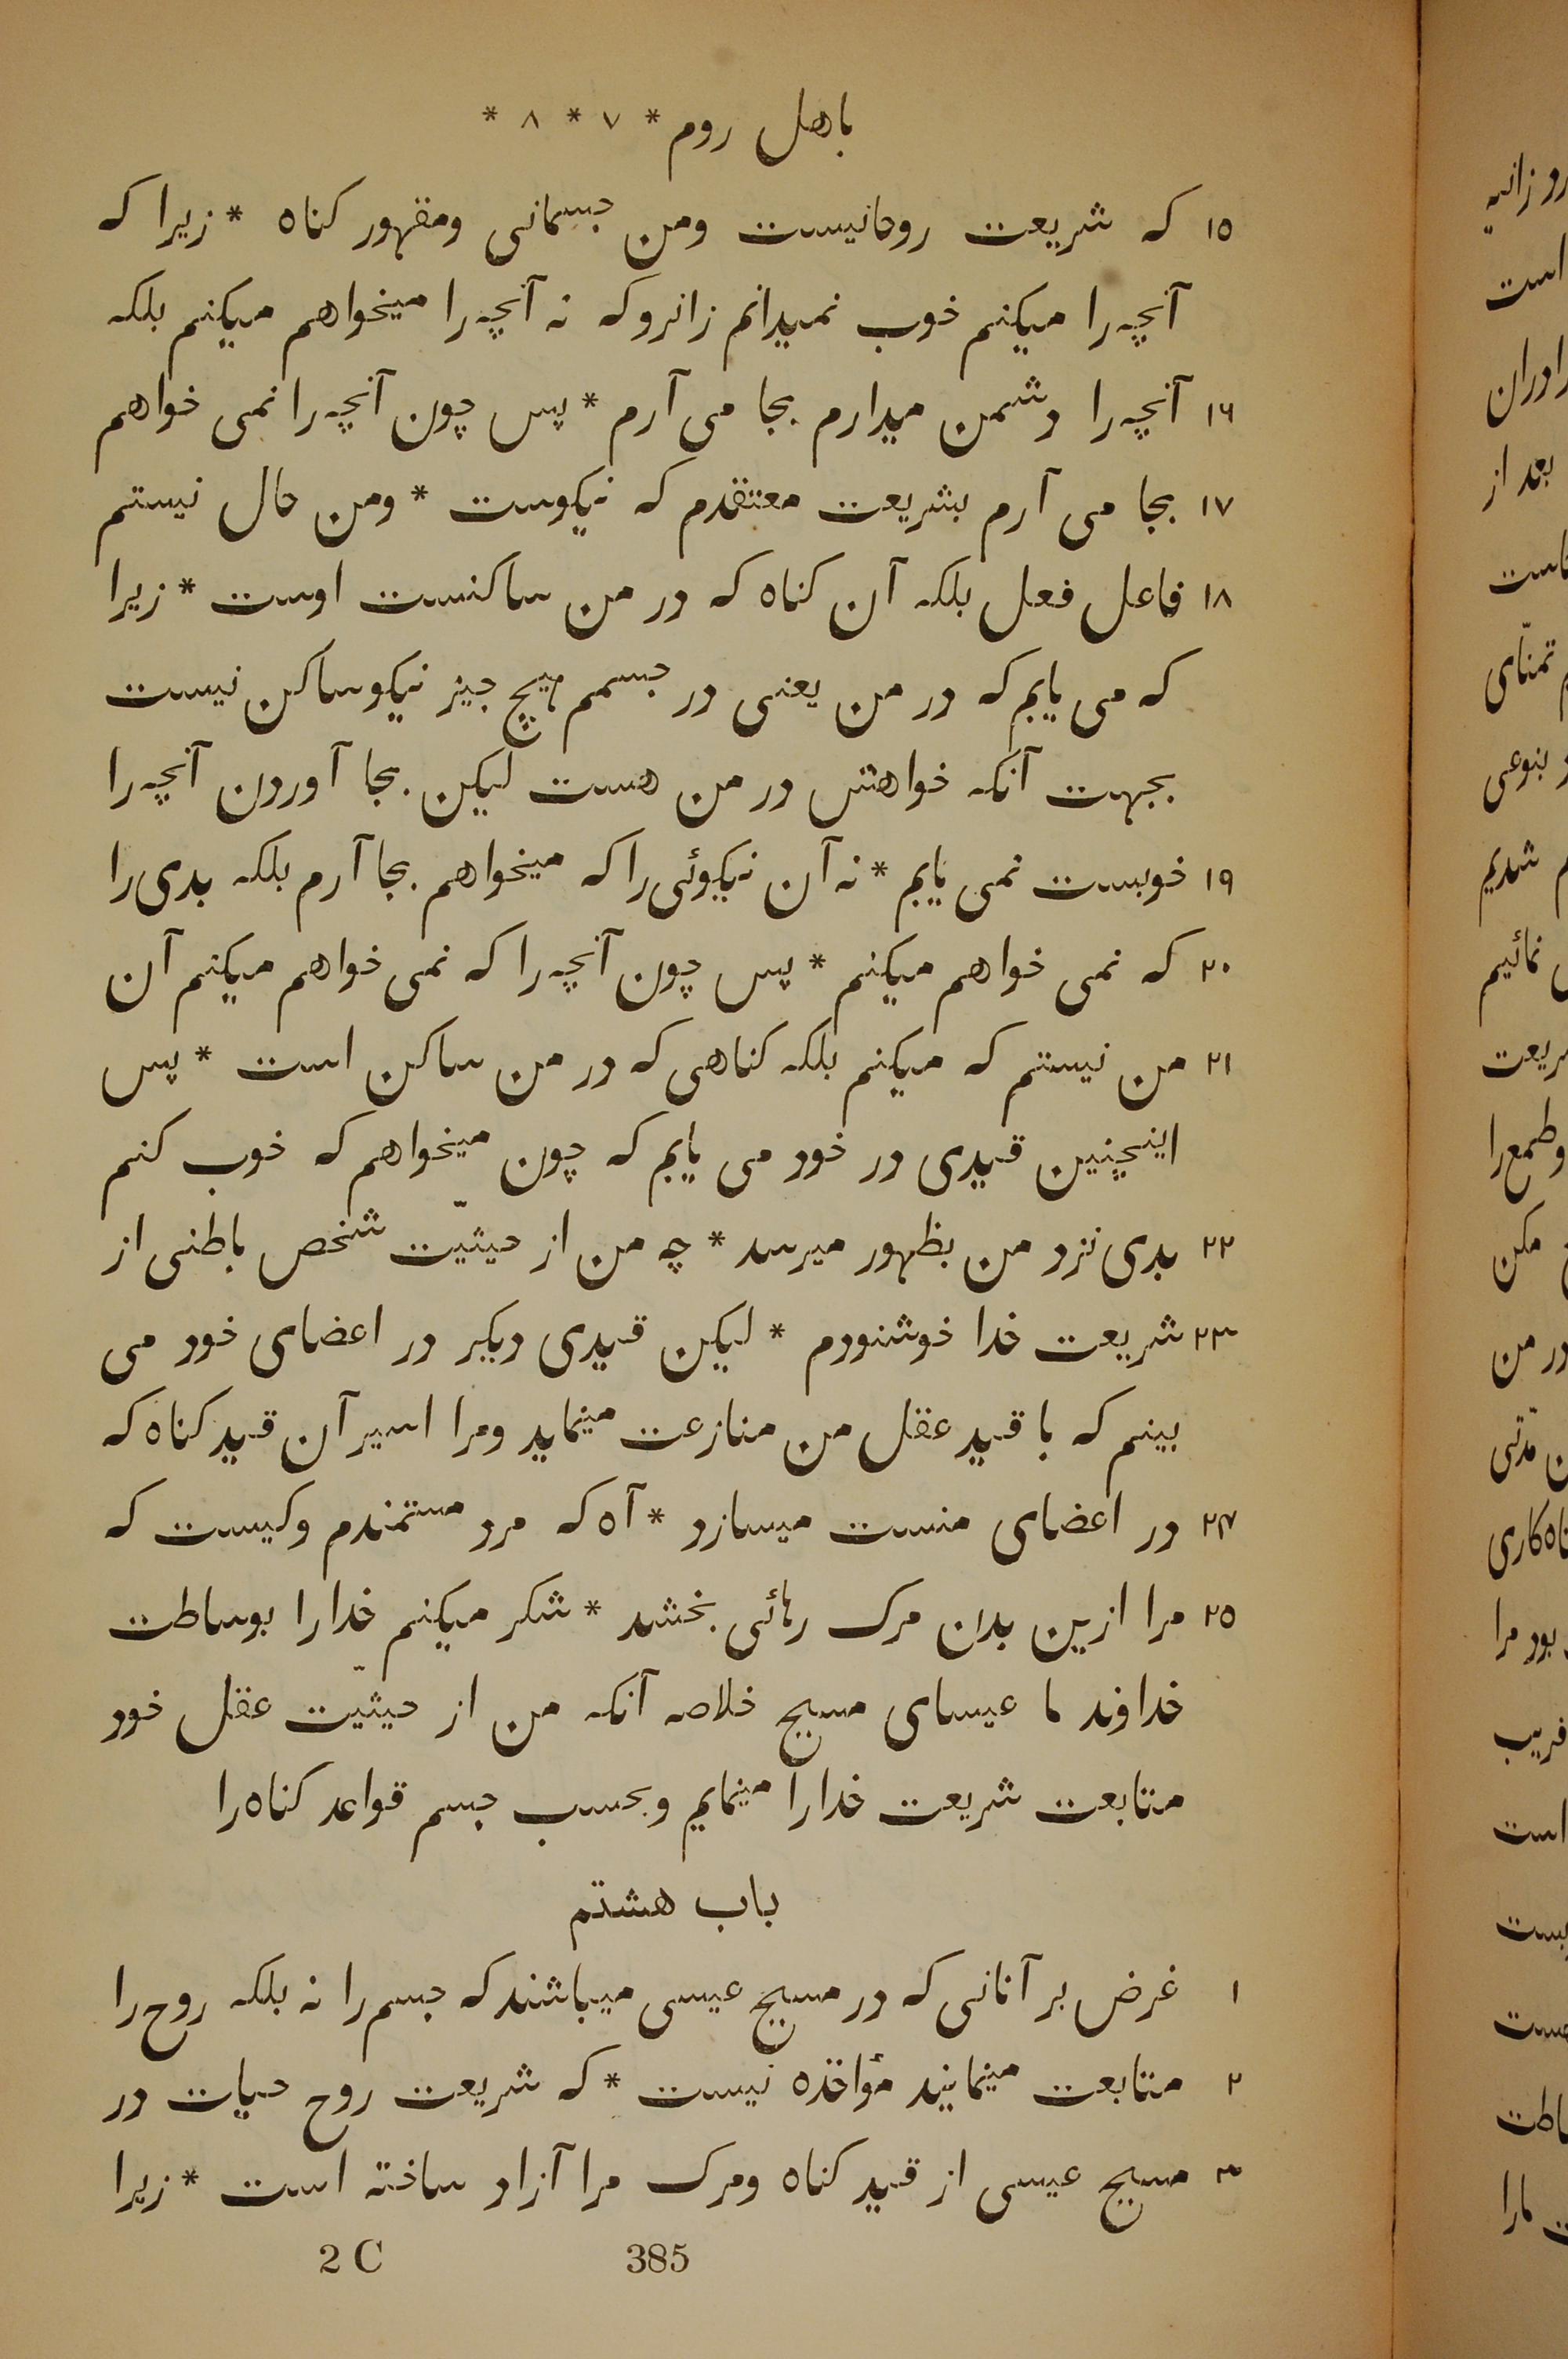 باهل روم * ۷ * ۸ *
۱۵ که شریعت روحانیست ومن جسمانی ومقهور کناه * زیرا که
آنچه را میکنم خوب نمیدانم زانرو که نه آنچه را میخواهم میکنم بلکه
۱۶ آنچه را دشمن میدارم بجا می آرم * پس چون آنچه را نمی خواهم
۱۷ بجا می آرم بشریعت معتقدم که نیکوست * ومن حال نیستم
۱۸ فاعل فعل بلکه آن کناه که در من ساکنست اوست * زیرا
که می یابم که در من یعنی در جسمم هیچ جیز نیکو ساکن نیست
بجهت آنکه خواهش در من هست لیکن بجا آوردن آنچه را
۱۹ خوبست نمی یابم * نه آن نیکوئی را که میخواهم بجا آرم بلکه بدی را
۲۰ که نمی خواهم میکنم * پس چون آنچه را که نمی خواهم میکنم آن
۲۱ من نیستم که میکنم بلکه کناهی که در من ساکن است * پس
اینچنین قیدی در خود می یابم که چون میخواهم که خوب کنم
۲۲ بدی نزد من بظهور میرسد * چه من از حیثیّت شخص باطنی از
۲۳ شریعت خدا خوشنودم * لیکن قیدی دیکر در اعضای خود می
بینم که با قید عقل من منازعت مینماید ومرا اسیر آن قید کناه که
۲۴ در اعضای منست میسازد * آه که مرد مستمندم وکیست که
۲۵ مرا ازین بدن مرک رهائی بخشد * شکر میکنم خدا را بوساطت
خداوند ما عیسای مسیح خلاصه آنکه من از حیثیّت عقل خود
متابعت شریعت خدا را مینمایم وبحسب جسم قواعد کناه را
باب هشتم
۱ غرض بر آنانی که در مسیح عیسی میباشند که جسم را نه بلکه روح را
۲ متابعت مینمایند مؤاخذه نیست * که شریعت روح حیات در
۳ مسیح عیسی از قید کناه ومرک مرا آزاد ساخته است * زیرا
2 C 385